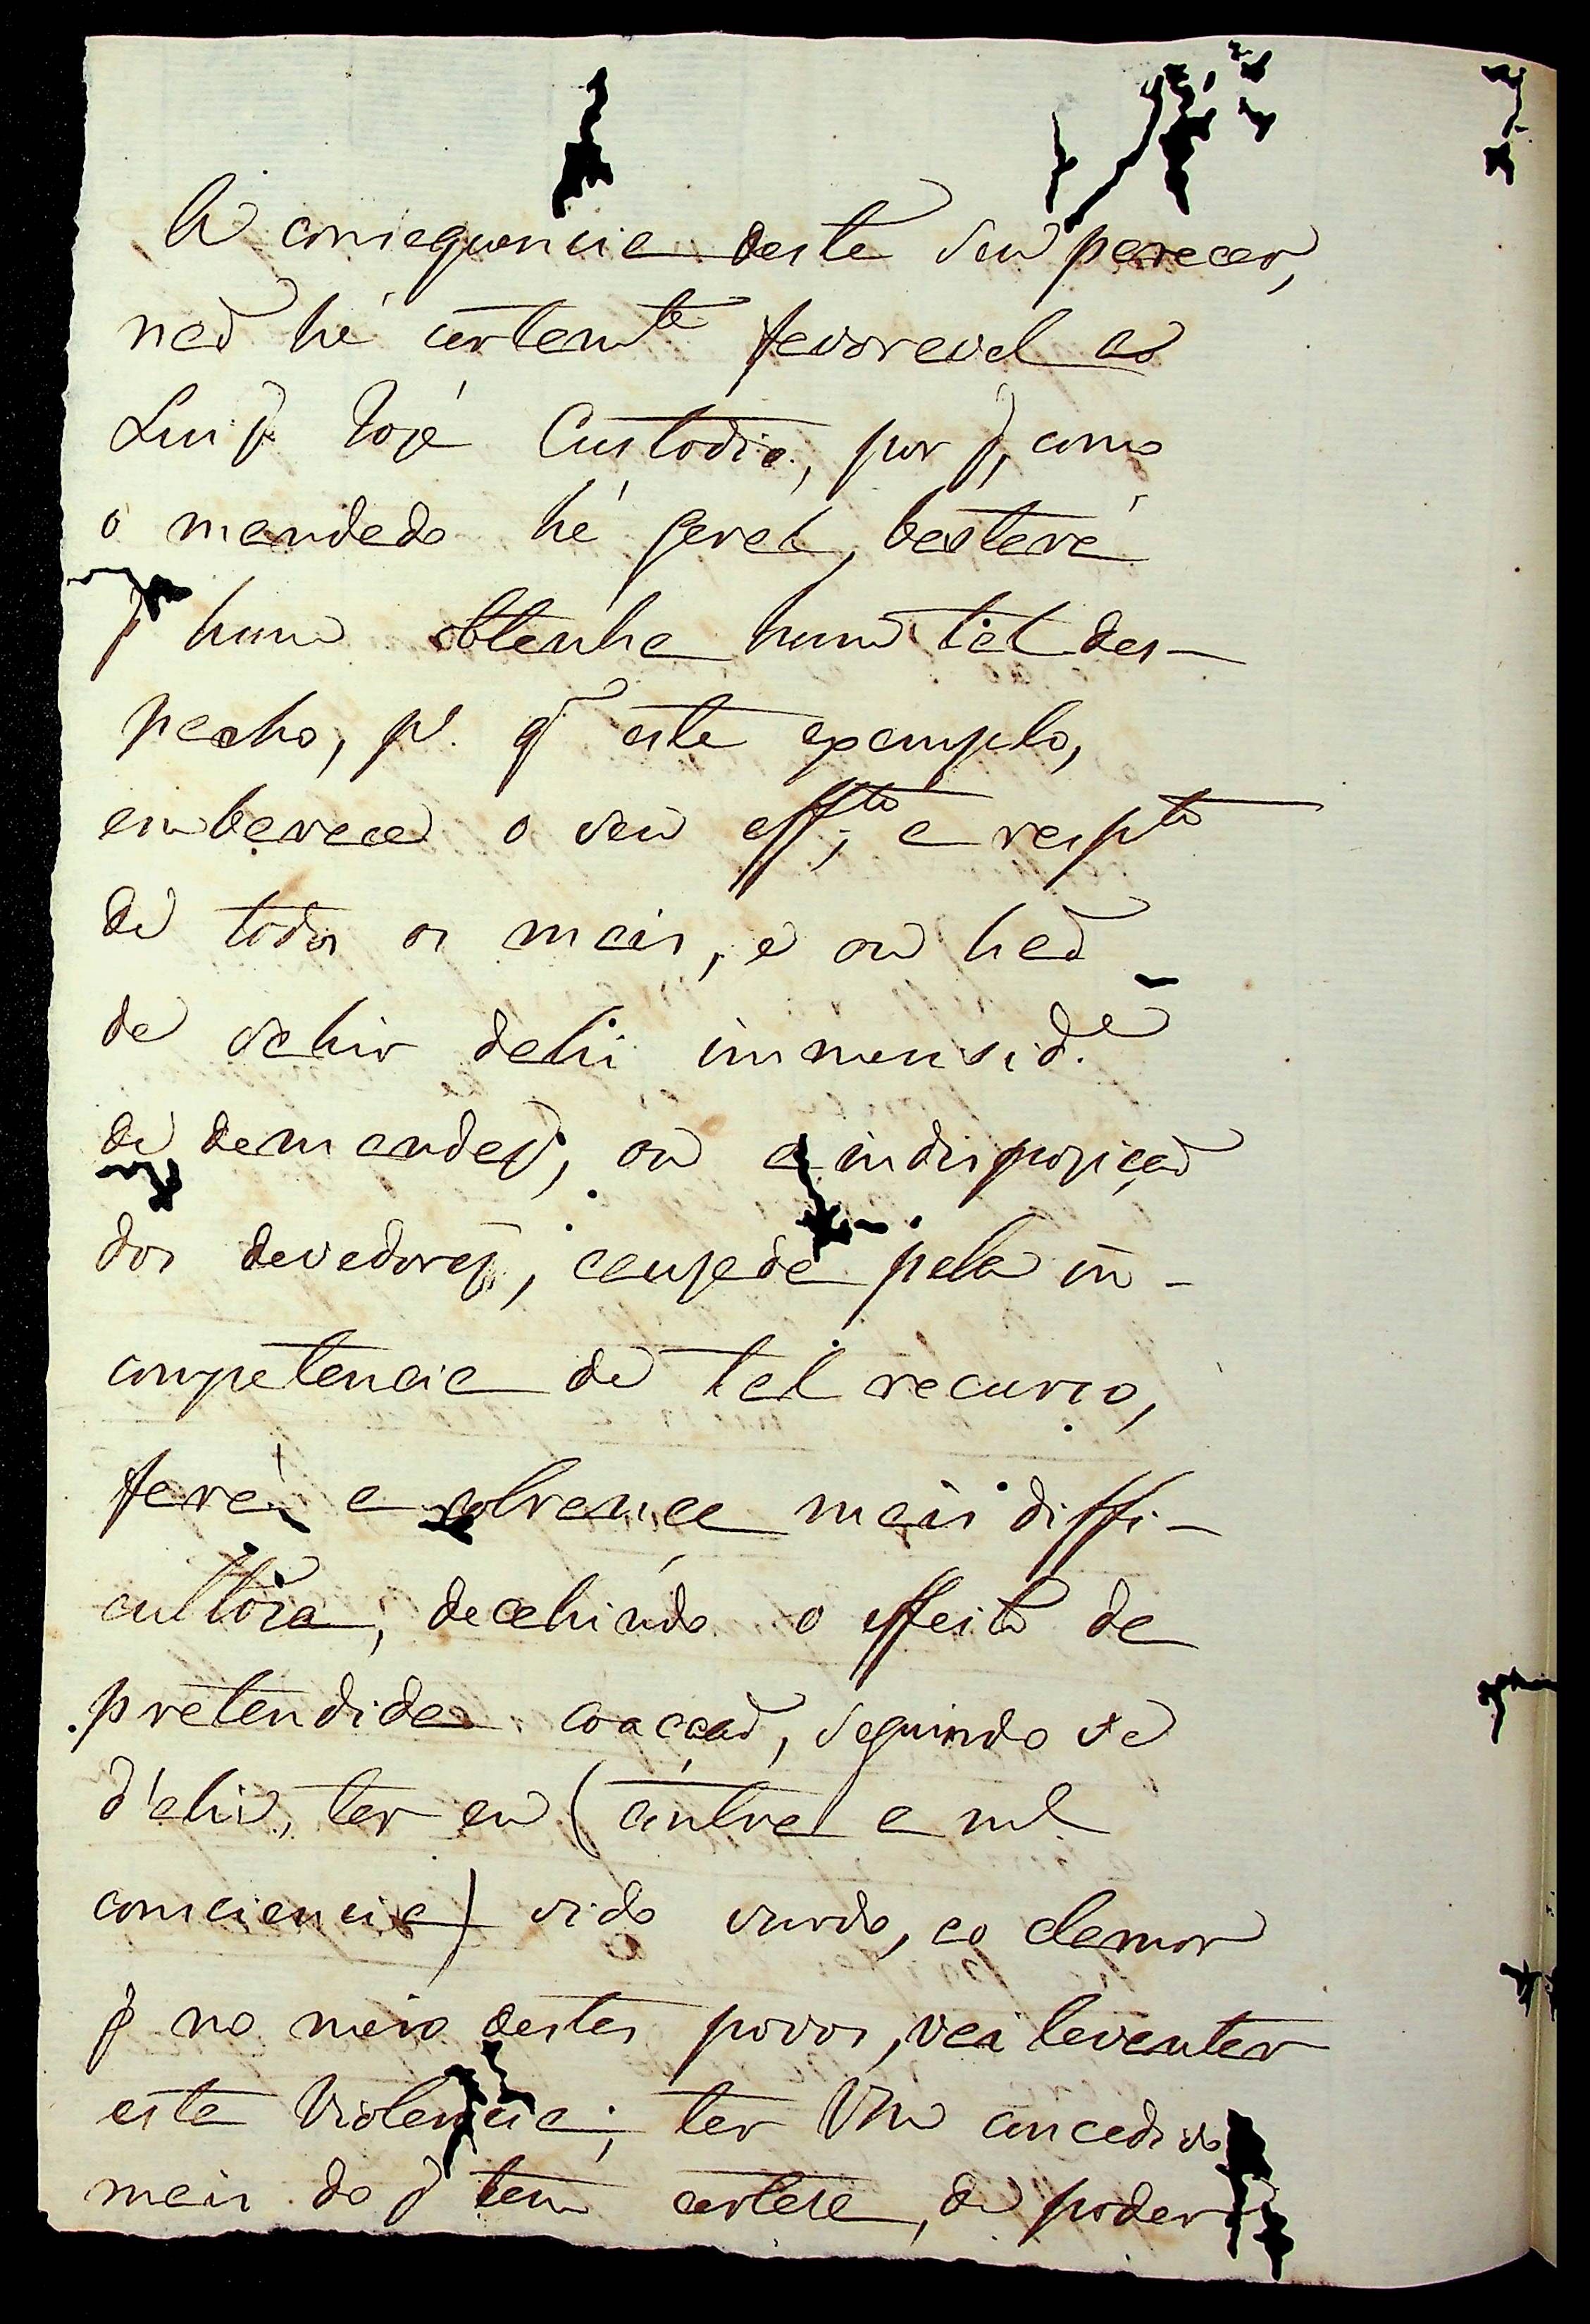 A consequencia deste seu parecer,
naõ hé certamte favoravel ao
Luiz José Custodio, por q, como
o mandado hé geral, bastará
q hum obtenha hum tal des-
pacho, pa. q este exemplo,
embarace o seu effto, a respto
de todos os mais, e ou haõ
de sahir dahi immensid.e
de demandas, ou a indispoziçaõ
dos devedores, cauzada pela in-
competencia de tal recurso,
fará a cobrança mais diffi-
cultoza, decahindo o effeito da
pretendida coacçaõ, seguindo se
d'ahi, ter eu (contra a ml
consciencia) sido surdo, ao clamor
q no meio destes povos, vai levantar
esta violencia; ter Vm concedido
mais do q tem certeza, de poder